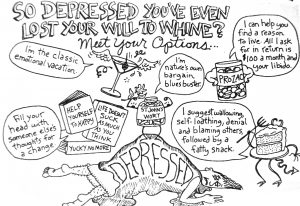 SO DEPRESSED YOU'VE EVEN
LOST YOUR WILL TO WHINE?
Meet Your Options...
I'm the classic
emotional vacation.
I'm
nature's own
bargain
bluesbuster.
I can help you
find a reason
to live. All I ask
for in return is
$100 a month and
your libido.
PROZAC
ST. JOHN'S
WORT
Fill your
head with
someone else's
thoughts for
a change.
HELP
YOURSELF
TO HAPPY
LIFE DOESN'T
SUCK
AS MUCH
AS YOU
THINK
YUCKY NO MORE
I suggest wallowing,
self-loathing, denial
and blaming others,
followed by a
fatty snack.
DEPRESSED